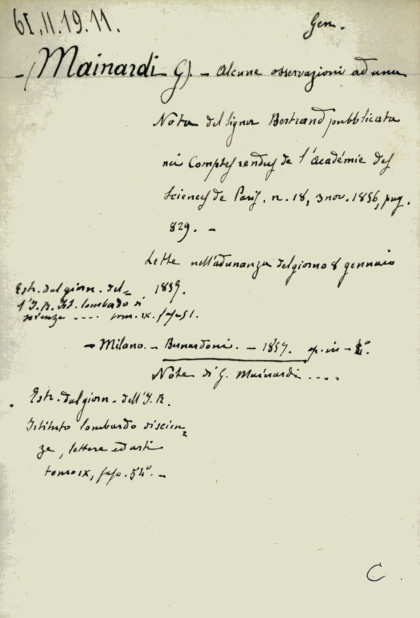 61.II.19.11.
Gen.
(Mainardi G). - Alcune osservazioni ad una
Nota del signor Bertrand pubblicata
nei Comptes rendus de l'Académie des
Sciences de Paris, n. 18, 3 nov. 1856, pag.
829. -
Lette nell'adunanza del giorno 8 gennaio
1857.
Estr. dal giorn. del-
l'I. R. Ist. lombardo di
scienze .... tom. IX. fasc. 51.
- Milano. - Bernardoni. - 1857. op. in - 4°.
Note di G. Mainardi ....
Estr. dal giorn. dell'I. R.
Istituto lombardo di scien-
ze, lettere ed arti
tomo IX, fasc. 54°. -
C